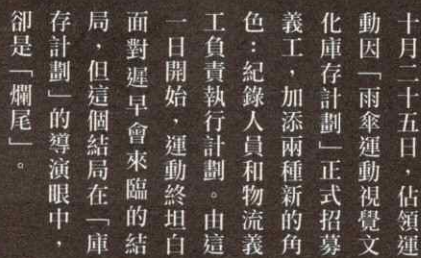 十月二十五日，佔領運
動因「雨傘運動視覺文
化庫存計劃」正式招募
義工，加添兩種新的角
色：紀錄人員和物流義
工負責執行計劃。由這
一日開始，運動終坦白
面對遲早會來臨的結
局，但這個結局在「庫
存計劃」的導演眼中，
卻是「爛尾」。